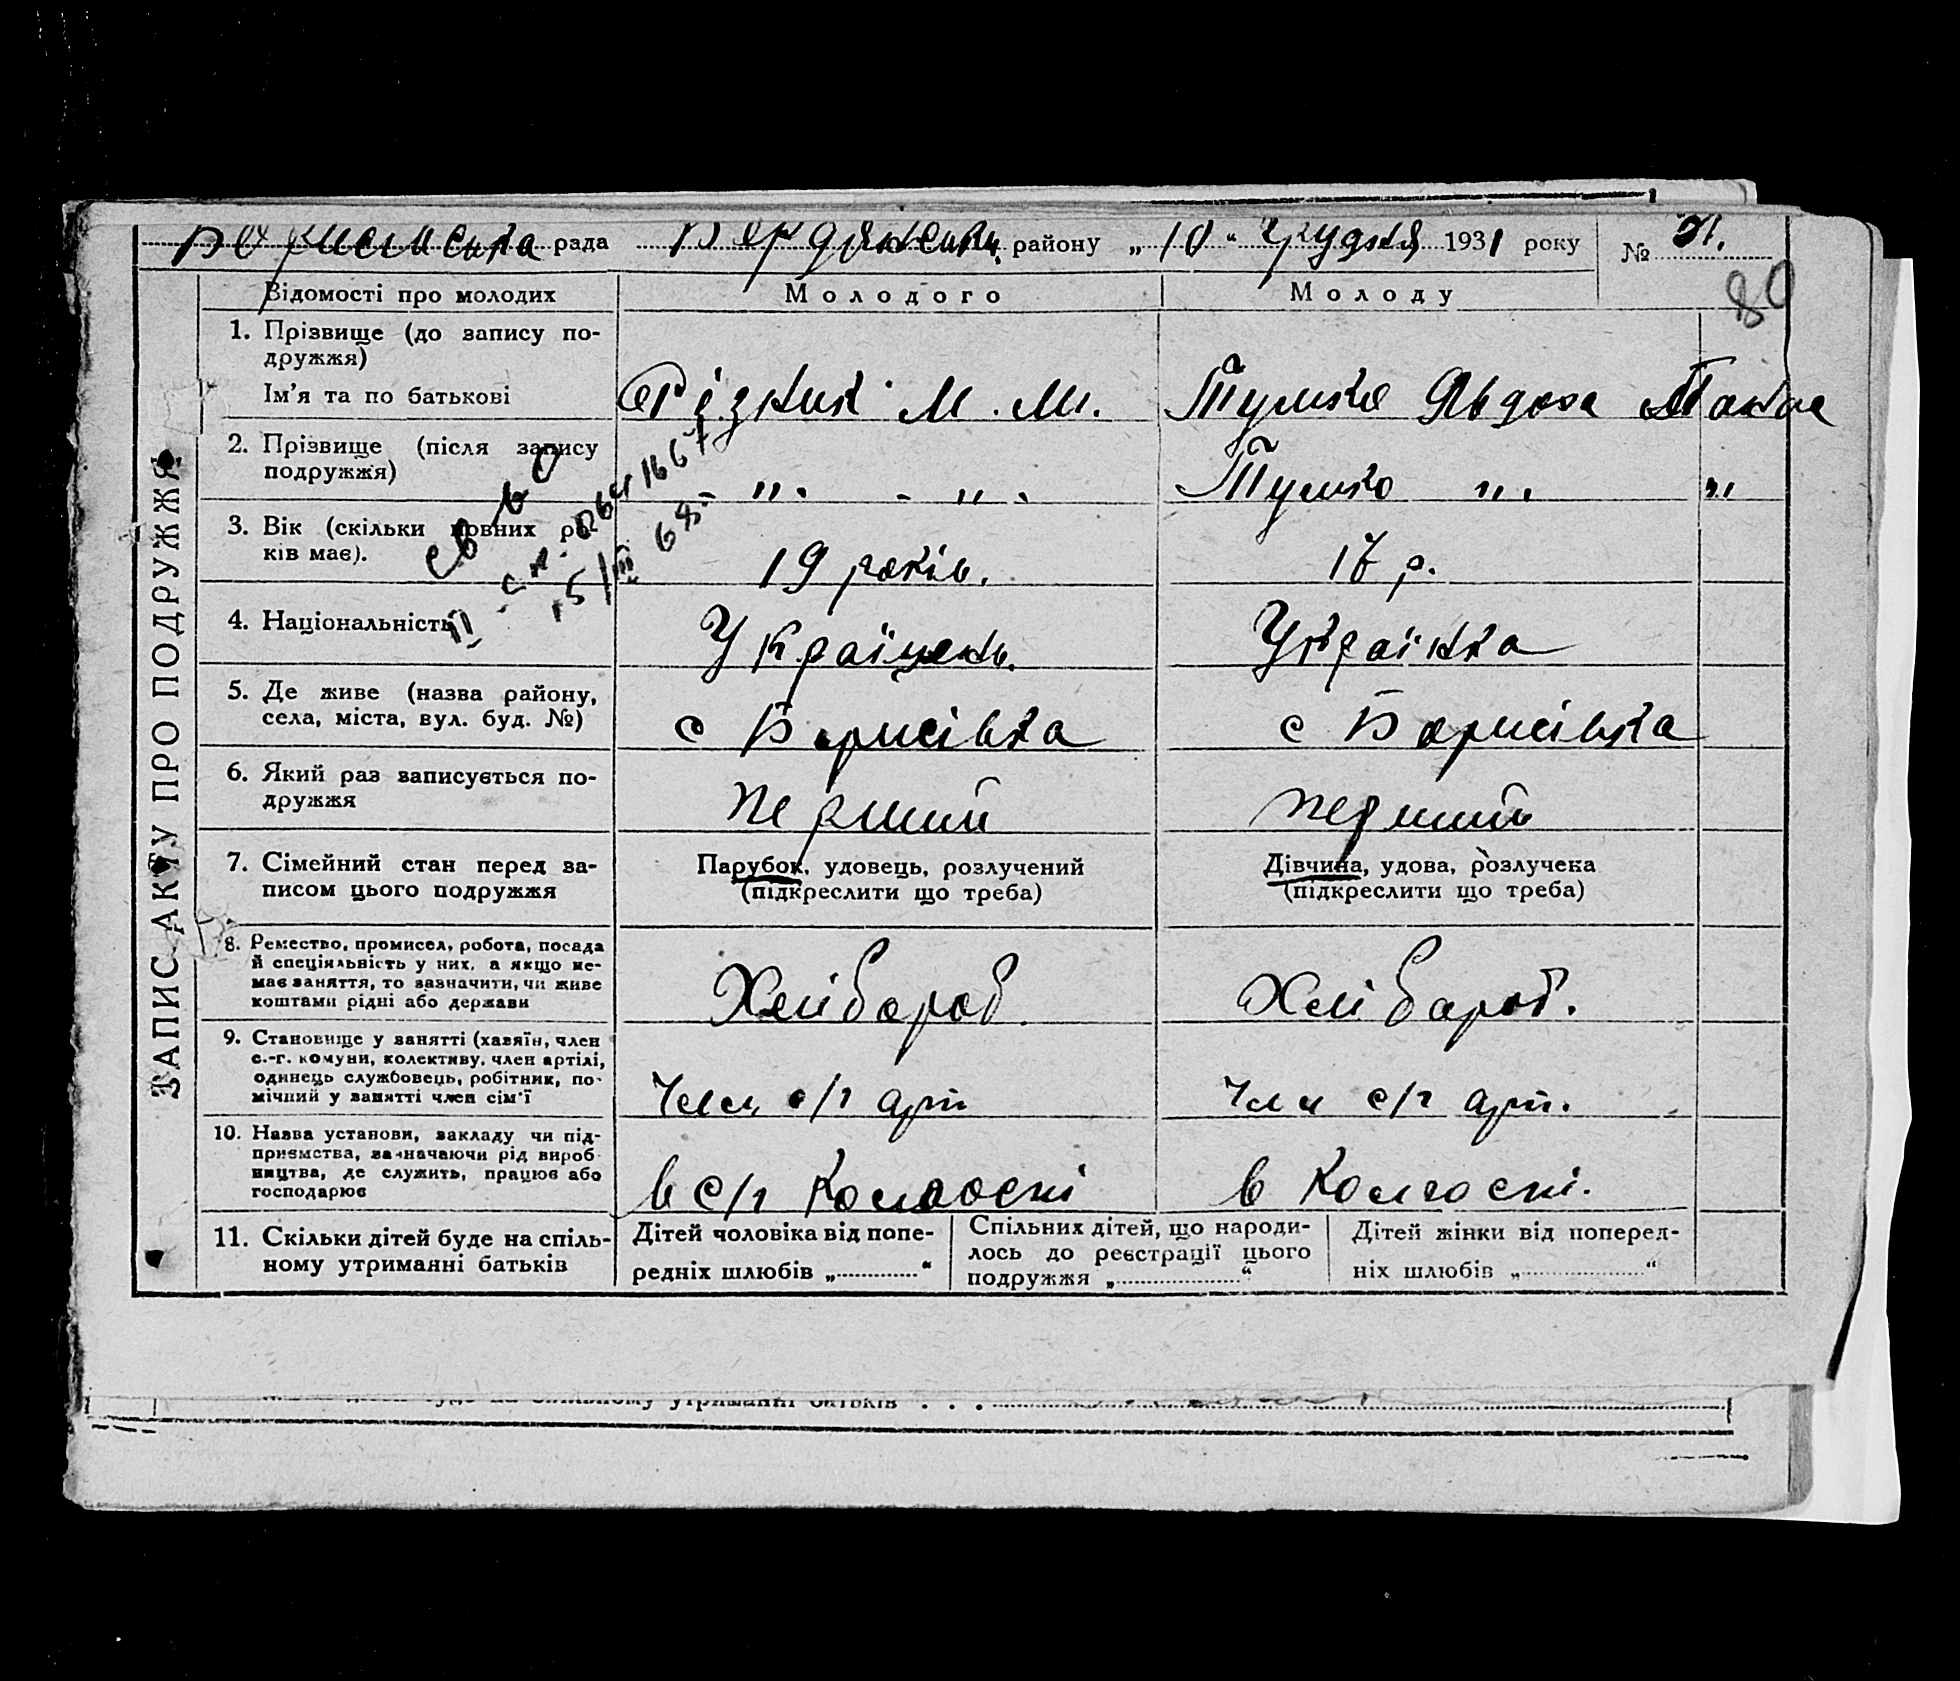 рада Бердянськ. району „10“ грудня 1931 року №
80
Відомості про молодих Молодого Молоду
ЗАПИС АКТУ ПРО ПОДРУЖЖЯ
1. Прізвище (до запису по-
дружжя)
Ім'я та по батькові
Різкий М. М. Тумко Явдоха
2. Прізвище (після запису
подружжя)
„ . - „ . Тумко „ . „
3. Вік (скільки повних ро-
ків має).
19 років. 17 р.
св во
II
5/III 68
4. Національність
Українець. Українка
5. Де живе (назва району,
села, міста, вул. буд. №)
с Борисівка с Борисівка
6. Який раз записується по-
дружжя
перший перший
7. Сімейний стан перед за-
писом цього подружжя
Парубок, удовець, розлучений
(підкреслити що треба)
Дівчина, удова, розлучена
(підкреслити що треба)
8. Ремество, промисел, робота, посада
й спеціяльність у них, а якщо не-
має заняття, то зазначити, чи живе
коштами рідні або держави
Хлібороб. Хлібороб.
9. Становище у занятті (хазяїн, член
с.-г. комуни, колективу, член артілі,
одинець службовець, робітник, по-
мічний у занятті член сім'ї
Член с/г арт Член с/г арт.
10. Назва установи, закладу чи під-
приємства, зазначаючи рід вироб-
ництва, де служить, працює або
господарює
в с/г колгоспі в колгоспі.
11. Скільки дітей буде на спіль-
ному утриманні батьків
Дітей чоловіка від попе-
редніх шлюбів „............“
Спільних дітей, що народи-
лось до реєстрації цього
подружжя „............“
Дітей жінки від поперед-
ніх шлюбів „............“
утриманні батьків . . .